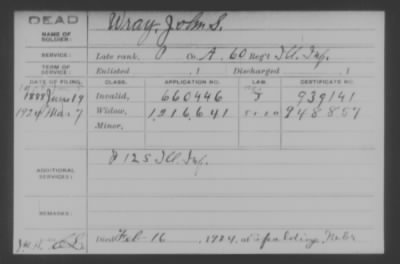 DEAD
NAME OF SOLDIER: Wray, John S.
SERVICE: Late rank, P Co. A, 60 Reg't Ill. Inf.
TERM OF SERVICE: Enlisted , 1 Discharged , 1
DATE OF FILING. CLASS. APPLICATION NO. LAW CERTIFICATE NO.
1888 June 19 Invalid, 660446 939141
1924 Mar 7 Widow, 1,216,641 948857
Minor,
ADDITIONAL SERVICES: F 125 Ill. Inf.
REMARKS:
Died Feb 16, 1924, at Spalding, Nebr